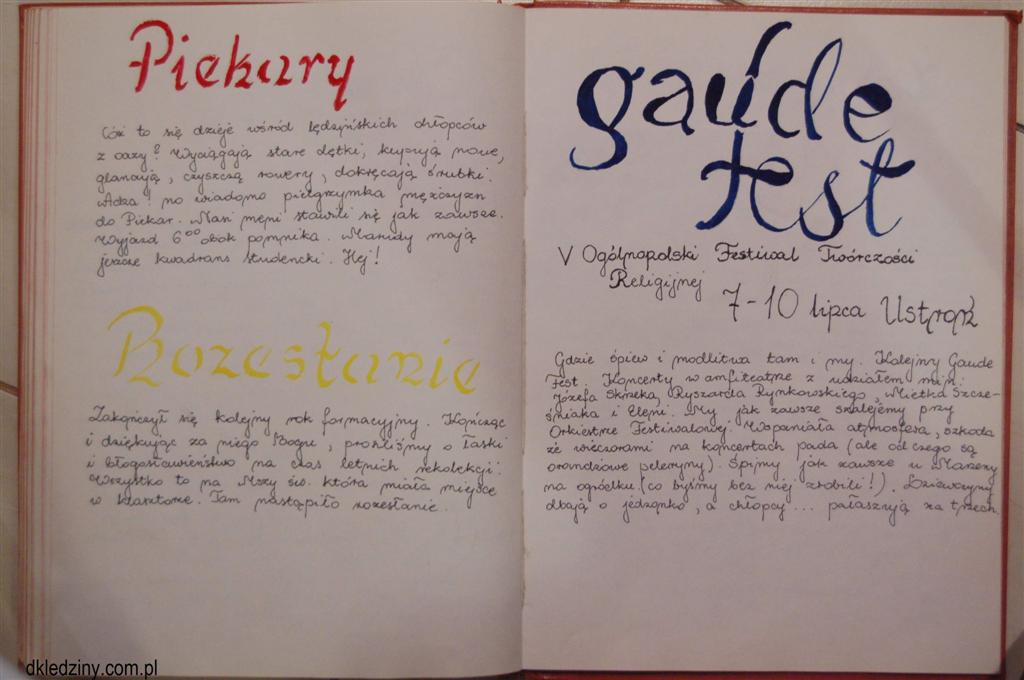 Piekary
Cóż to się dzieje wśród lędzińskich chłopców
z oazy? Wyciągają stare dętki, kupują nowe,
glancują, czyszczą rowery, dokręcają śrubki.
no wiadomo pielgrzymka mężczyzn
do Piekar. Nasi męni stawili się jak zawsze.
Wyjazd 6⁰⁰ obok pomnika. Marudy mają
jeszcze kwadrans studencki. Hej!
Rozesłanie
Zakończył się kolejny rok formacyjny. Kończąc
i dziękując za niego Bogu, prosiliśmy o łaski
i błogosławieństwo na czas letnich rekolekcji.
Wszystko to na Mszy św. która miała miejsce
w klasztorze. Tam nastąpiło rozesłanie.
gaude
fest
V Ogólnopolski Festiwal Twórczości
Religijnej
7-10 lipca Ustroń
Gdzie śpiew i modlitwa tam i my. Kolejny Gaude
Fest. Koncerty w amfiteatrze z udziałem m.in.
Józefa Skrzeka, Ryszarda Rynkowskiego, Mietka Szcze-
śniaka i Eleni. My jak zawsze szalejemy przy
Orkiestrze Festiwalowej. Wspaniała atmosfera, szkoda
że wieczorami na koncertach pada (ale od czego są
oranżowe peleryny). Śpimy jak zawsze u Marzeny
na ogródku (co byśmy bez niej zrobili!). Dziewczyny
dbają o jedzonko, a chłopcy... pałaszują za trzech.
dkledziny.com.pl